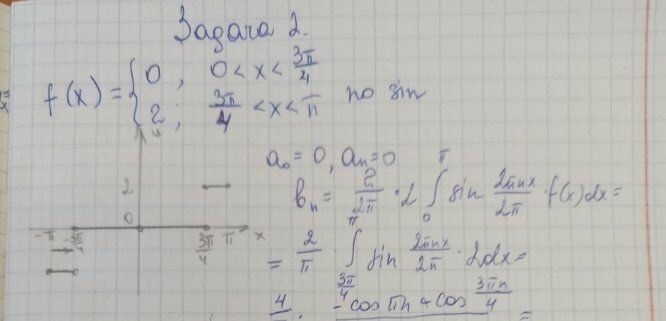 Задача 2.
f(x) = { 0 , 0 < x < 3π/4
2 ; 3π/4 < x < π по sin
a₀ = 0, aₙ = 0
bₙ = 2/2π · 2 ∫₀^π sin 2πnx/2π · f(x)dx =
= 2/π ∫_{3π/4}^π sin 2πnx/2π · 2dx =
4 · -cos πn + cos 3πn/4 =
2
0
-π -3π/4 3π/4 π x